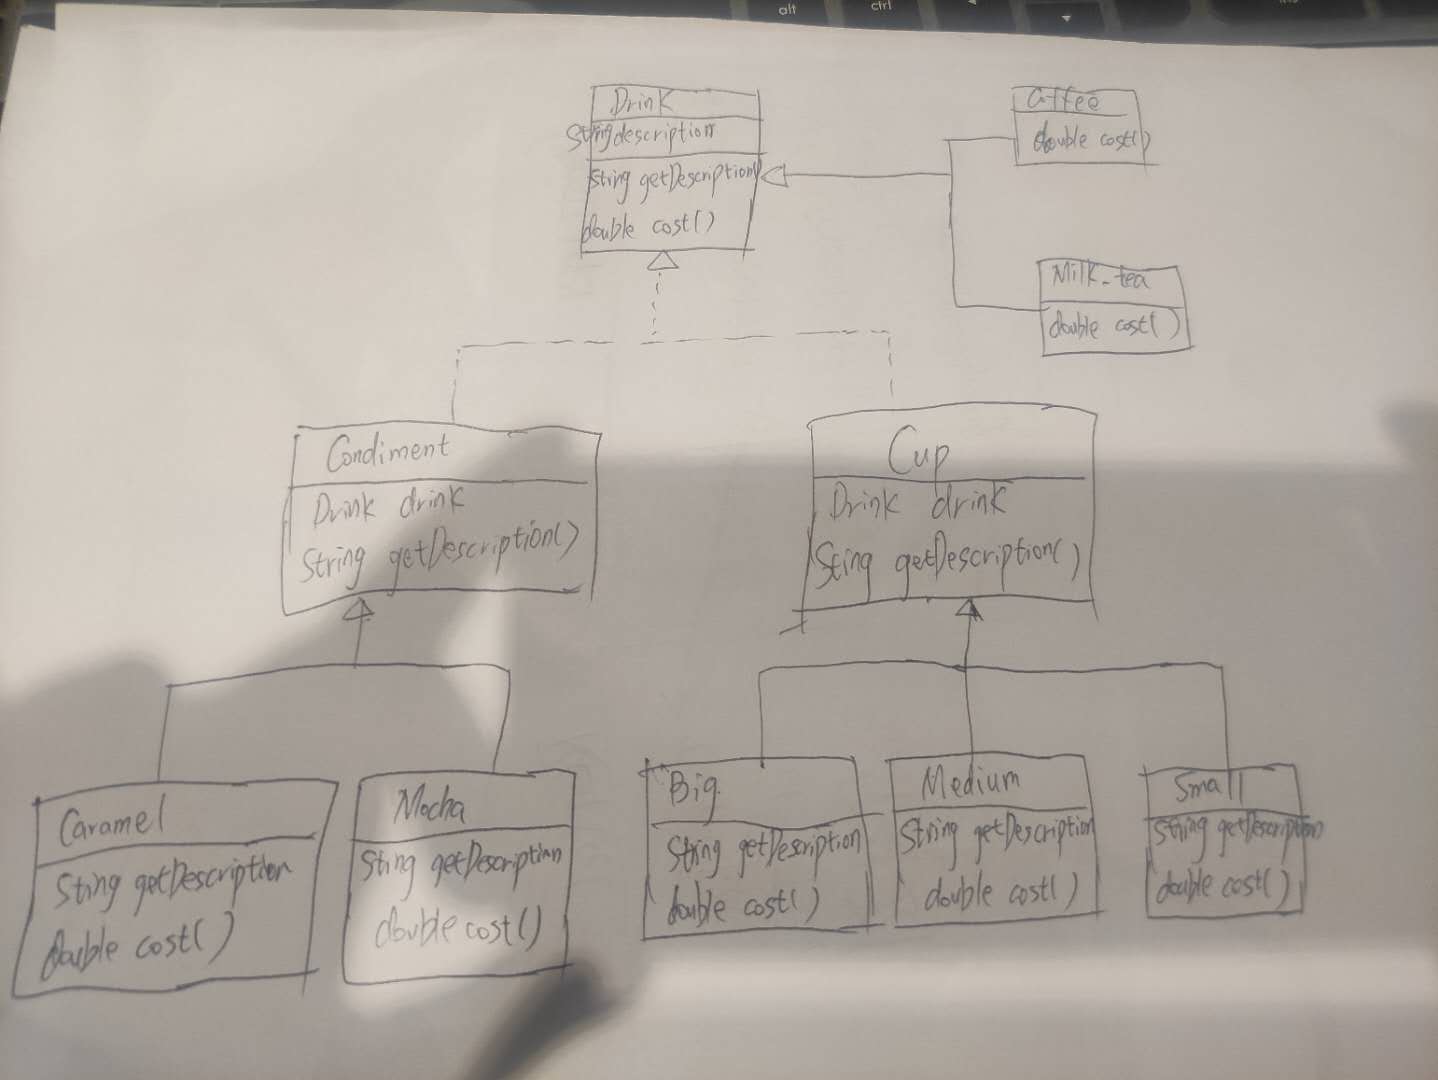 alt
ctrl
Drink
String description
String getDescription()
double cost()
Coffee
double cost()
Milk-tea
double cost()
Condiment
Drink drink
String getDescription()
Cup
Drink drink
Sting getDescription()
Caramel
String getDescription
double cost()
Mocha
Sting getDescription
double cost()
Big
String getDescription
double cost()
Medium
String getDescription
double cost()
Small
String getDescription
double cost()